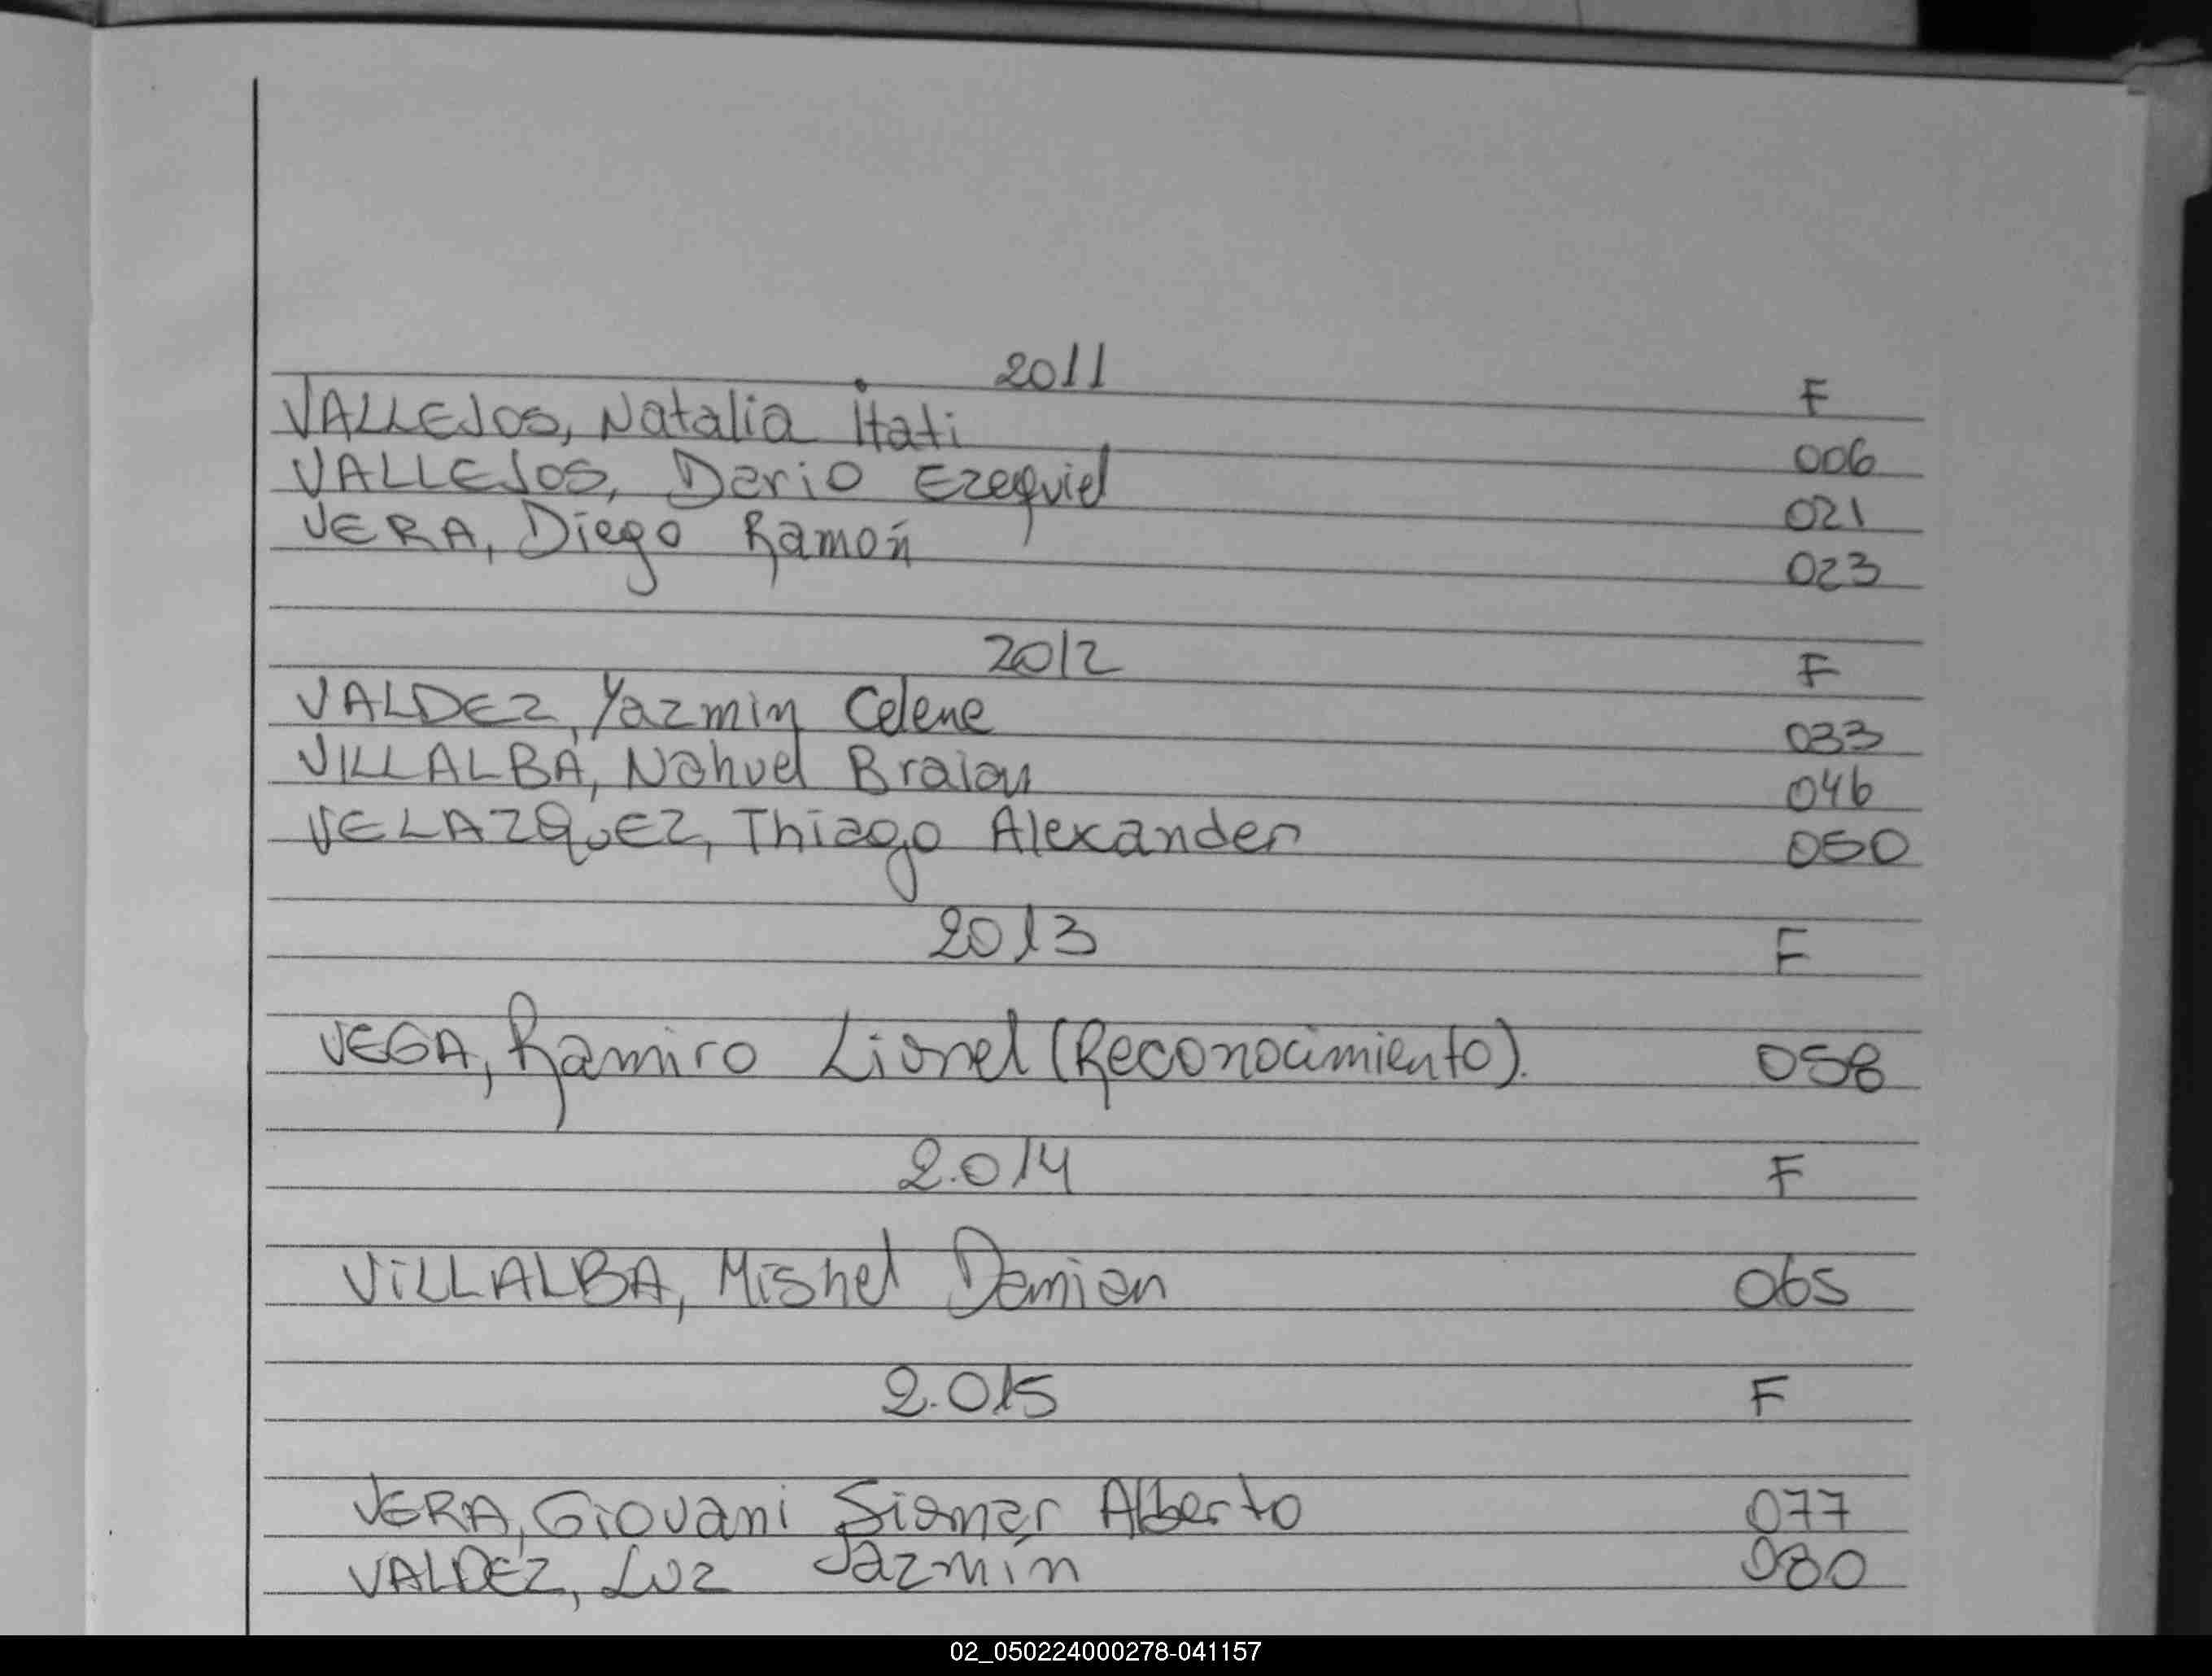 2011 F
VALLEJOS, Natalia Itati 006
VALLEJOS, Dario Ezequiel 021
VERA, Diego Ramón 023
2012 F
VALDEZ, Yazmin Celene 033
VILLALBA, Nahuel Braian 046
VELAZQUEZ, Thiago Alexander 050
2013 F
VEGA, Ramiro Lionel (Reconocimiento). 058
2.014 F
VILLALBA, Mishel Demian 065
2.015 F
VERA, Giovani Siomar Alberto 077
VALDEZ, Luz Jazmín 080
02_050224000278-041157